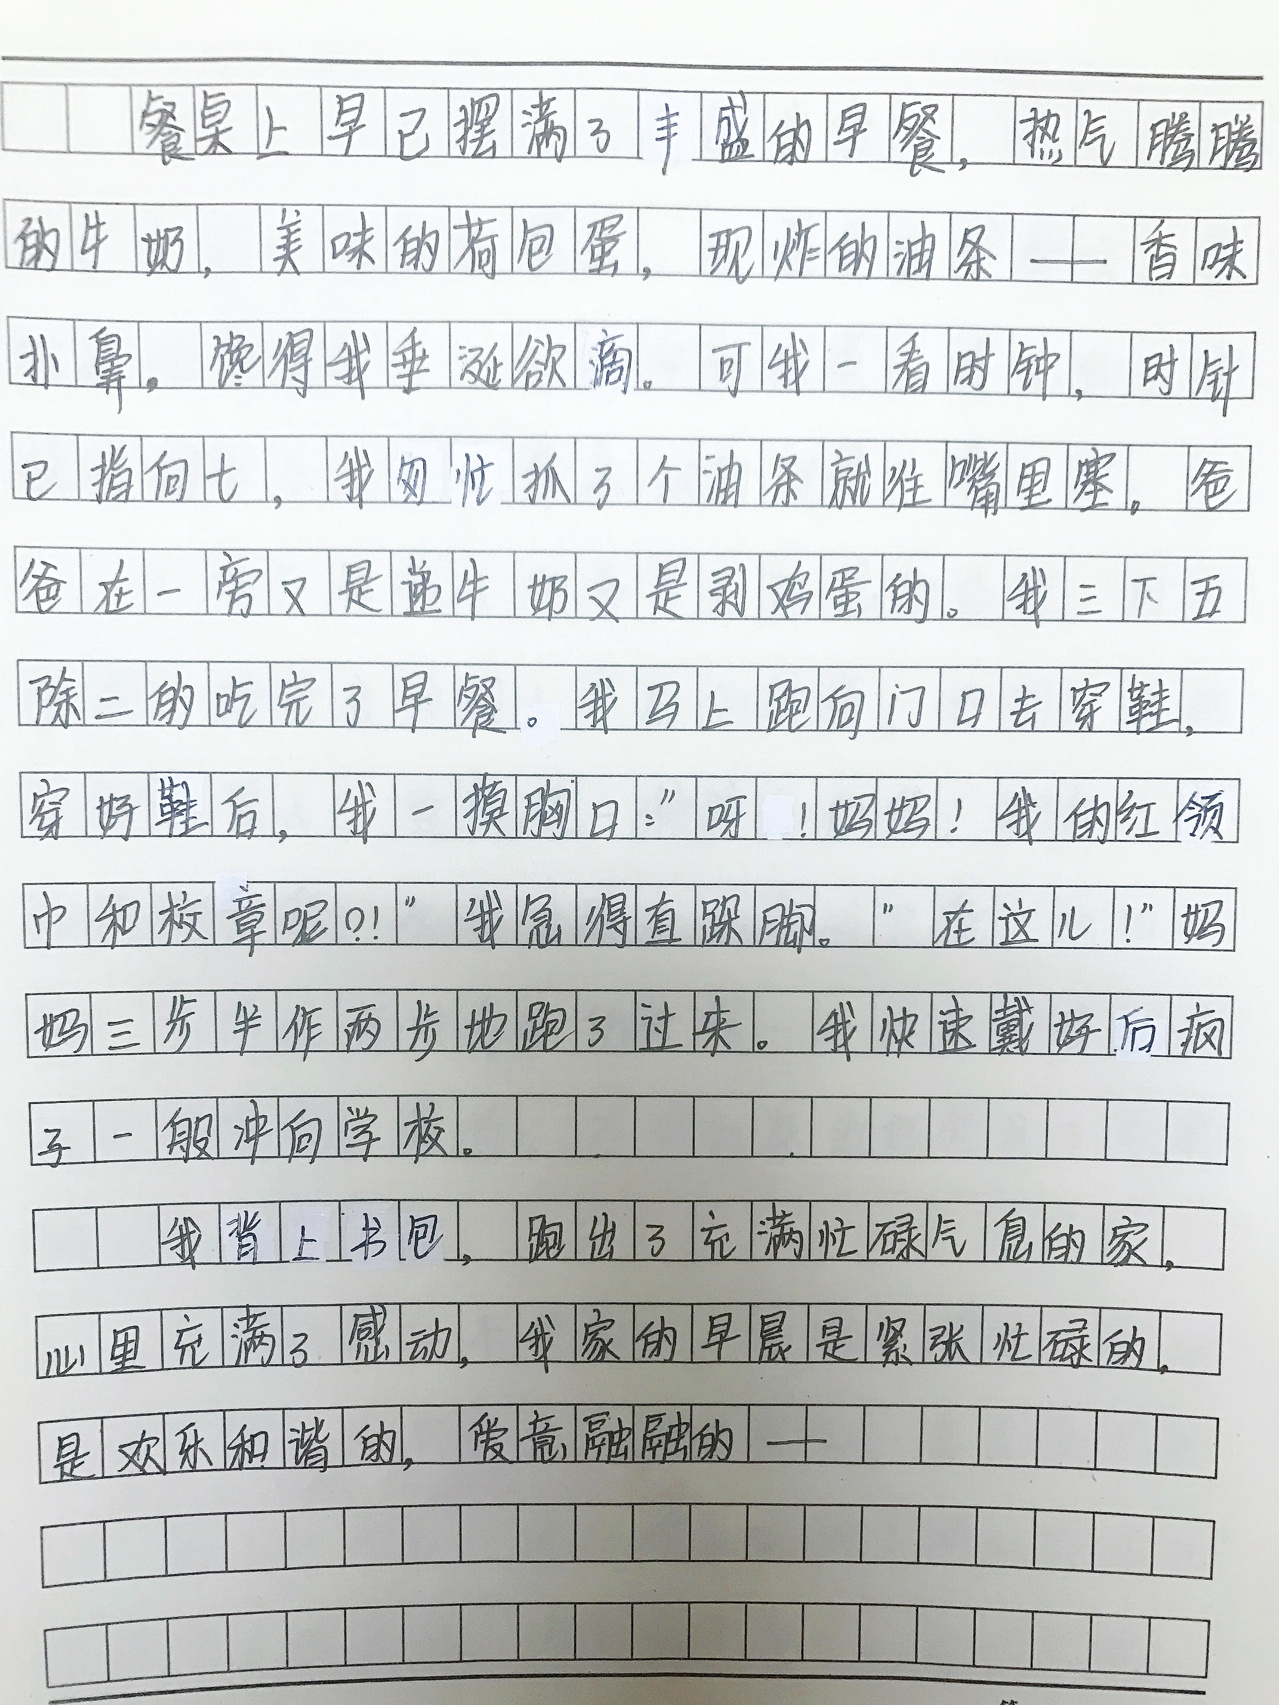 餐桌上早已摆满了丰盛的早餐，热气腾腾
的牛奶，美味的荷包蛋，现炸的油条——香味
扑鼻。馋得我垂涎欲滴。可我一看时钟，时针
已指向七，我匆忙抓了个油条就往嘴里塞。爸
爸在一旁又是递牛奶又是剥鸡蛋的。我三下五
除二的吃完了早餐。我马上跑向门口去穿鞋，
穿好鞋后，我一摸胸口：”呀！妈妈！我的红领
巾和校章呢？！”我急得直跺脚。”在这儿！”妈
妈三步半作两步地跑了过来。我快速戴好后疯
子一般冲向学校。
我背上书包，跑出了充满忙碌气息的家，
心里充满了感动，我家的早晨是紧张忙碌的，
是欢乐和谐的，爱意融融的——